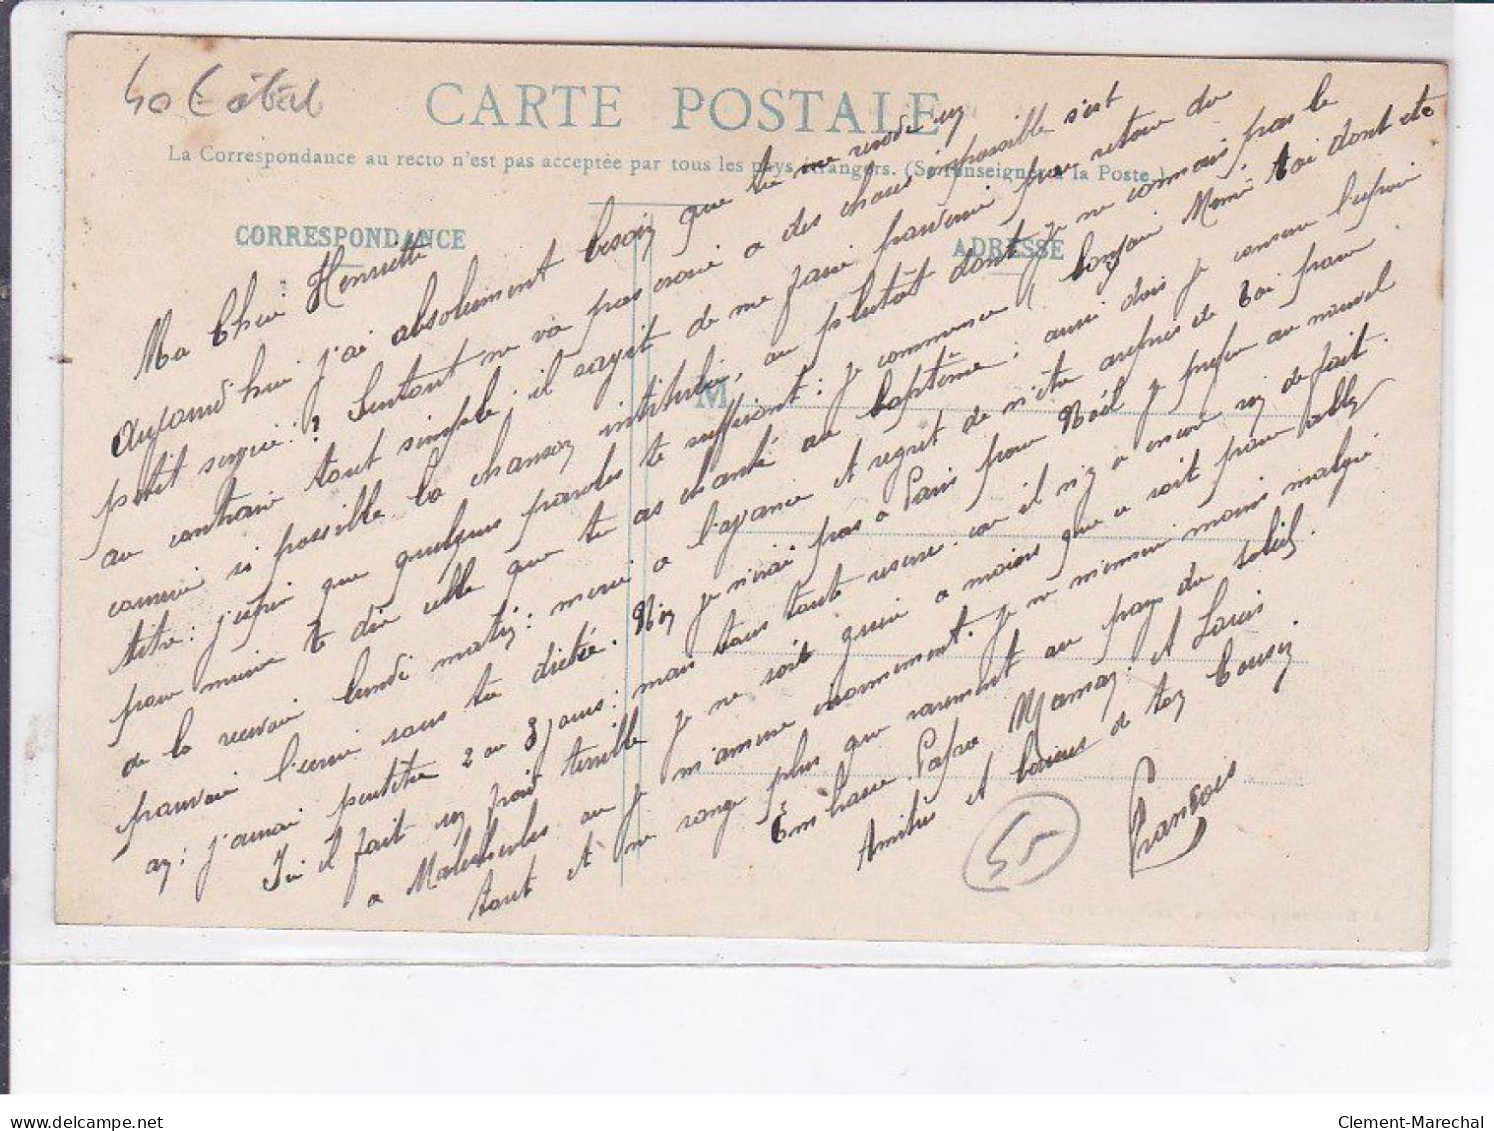 CARTE POSTALE
La Correspondance au recto n'est pas acceptée par tous les pays étrangers. (Se renseigner à la Poste.)
CORRESPONDANCE
ADRESSE
M
Ma Chère Henriette
Aujourd'hui j'ai absolument besoin que tu me rende un
petit service ? Surtout ne va pas croire a des choses impossible c'est
au contraire tout simple : il s'agit de me faire parvenir par retour du
courrier si possible la chanson intitulée, ou plutôt dont je ne connais pas le
titre : j'espère que quelques paroles te suffiront : je commence ( bonjour Mémé toi dont
pour mieux te dire celle que tu as chanté au baptême : aussi dois je conserver l'espoir
de la recevoir lundi matin : merci a l'avance et regret de n'être auprès de toi pour
pouvoir l'écrire sous ta dictée. Non je n'irai pas a Paris pour Noël je préfère au nouvel
an : j'aurai peutêtre 2 ou 3 jours : mais sous toute réserve car il n'y a encore rien de fait.
Ici il fait un froid terrible je ne sors guère a moins que ce soit pour aller
a Malesherbes ou je m'amuse énormement. Je ne m'ennuie moins malgré
tout et me range plus que rarement au pays du soleil.
Embrasse Papa Maman et Louis
Amitiés et baisers de ton Cousin
François
45
Clement-Marechal
www.delcampe.net